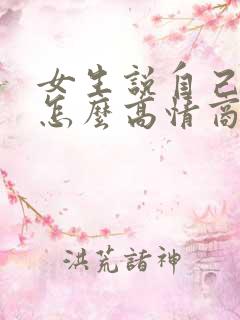 女生說自己
怎麼高情商
洪荒諸神